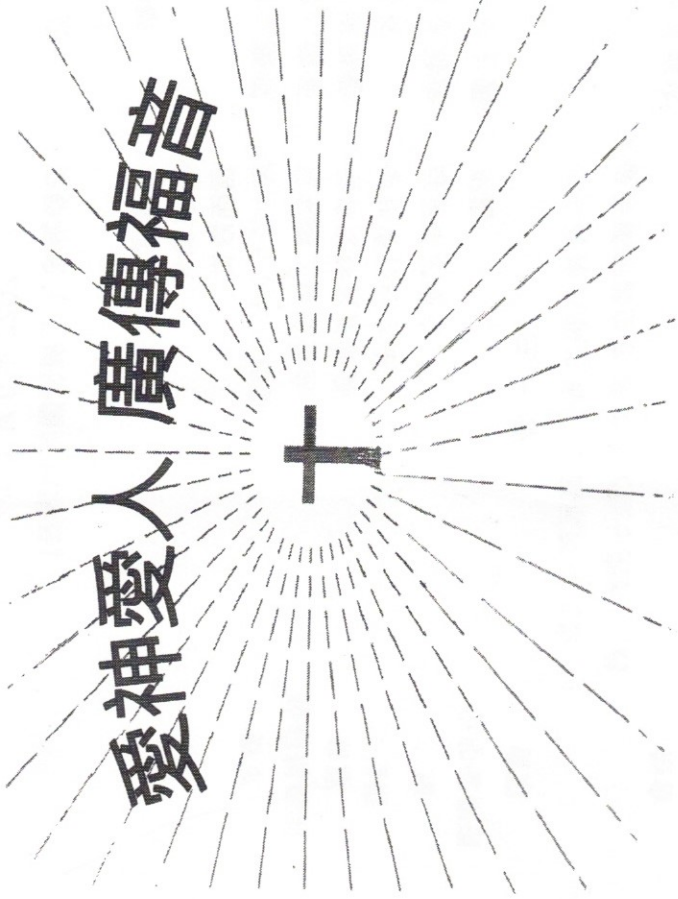 愛神愛人 廣傳福音